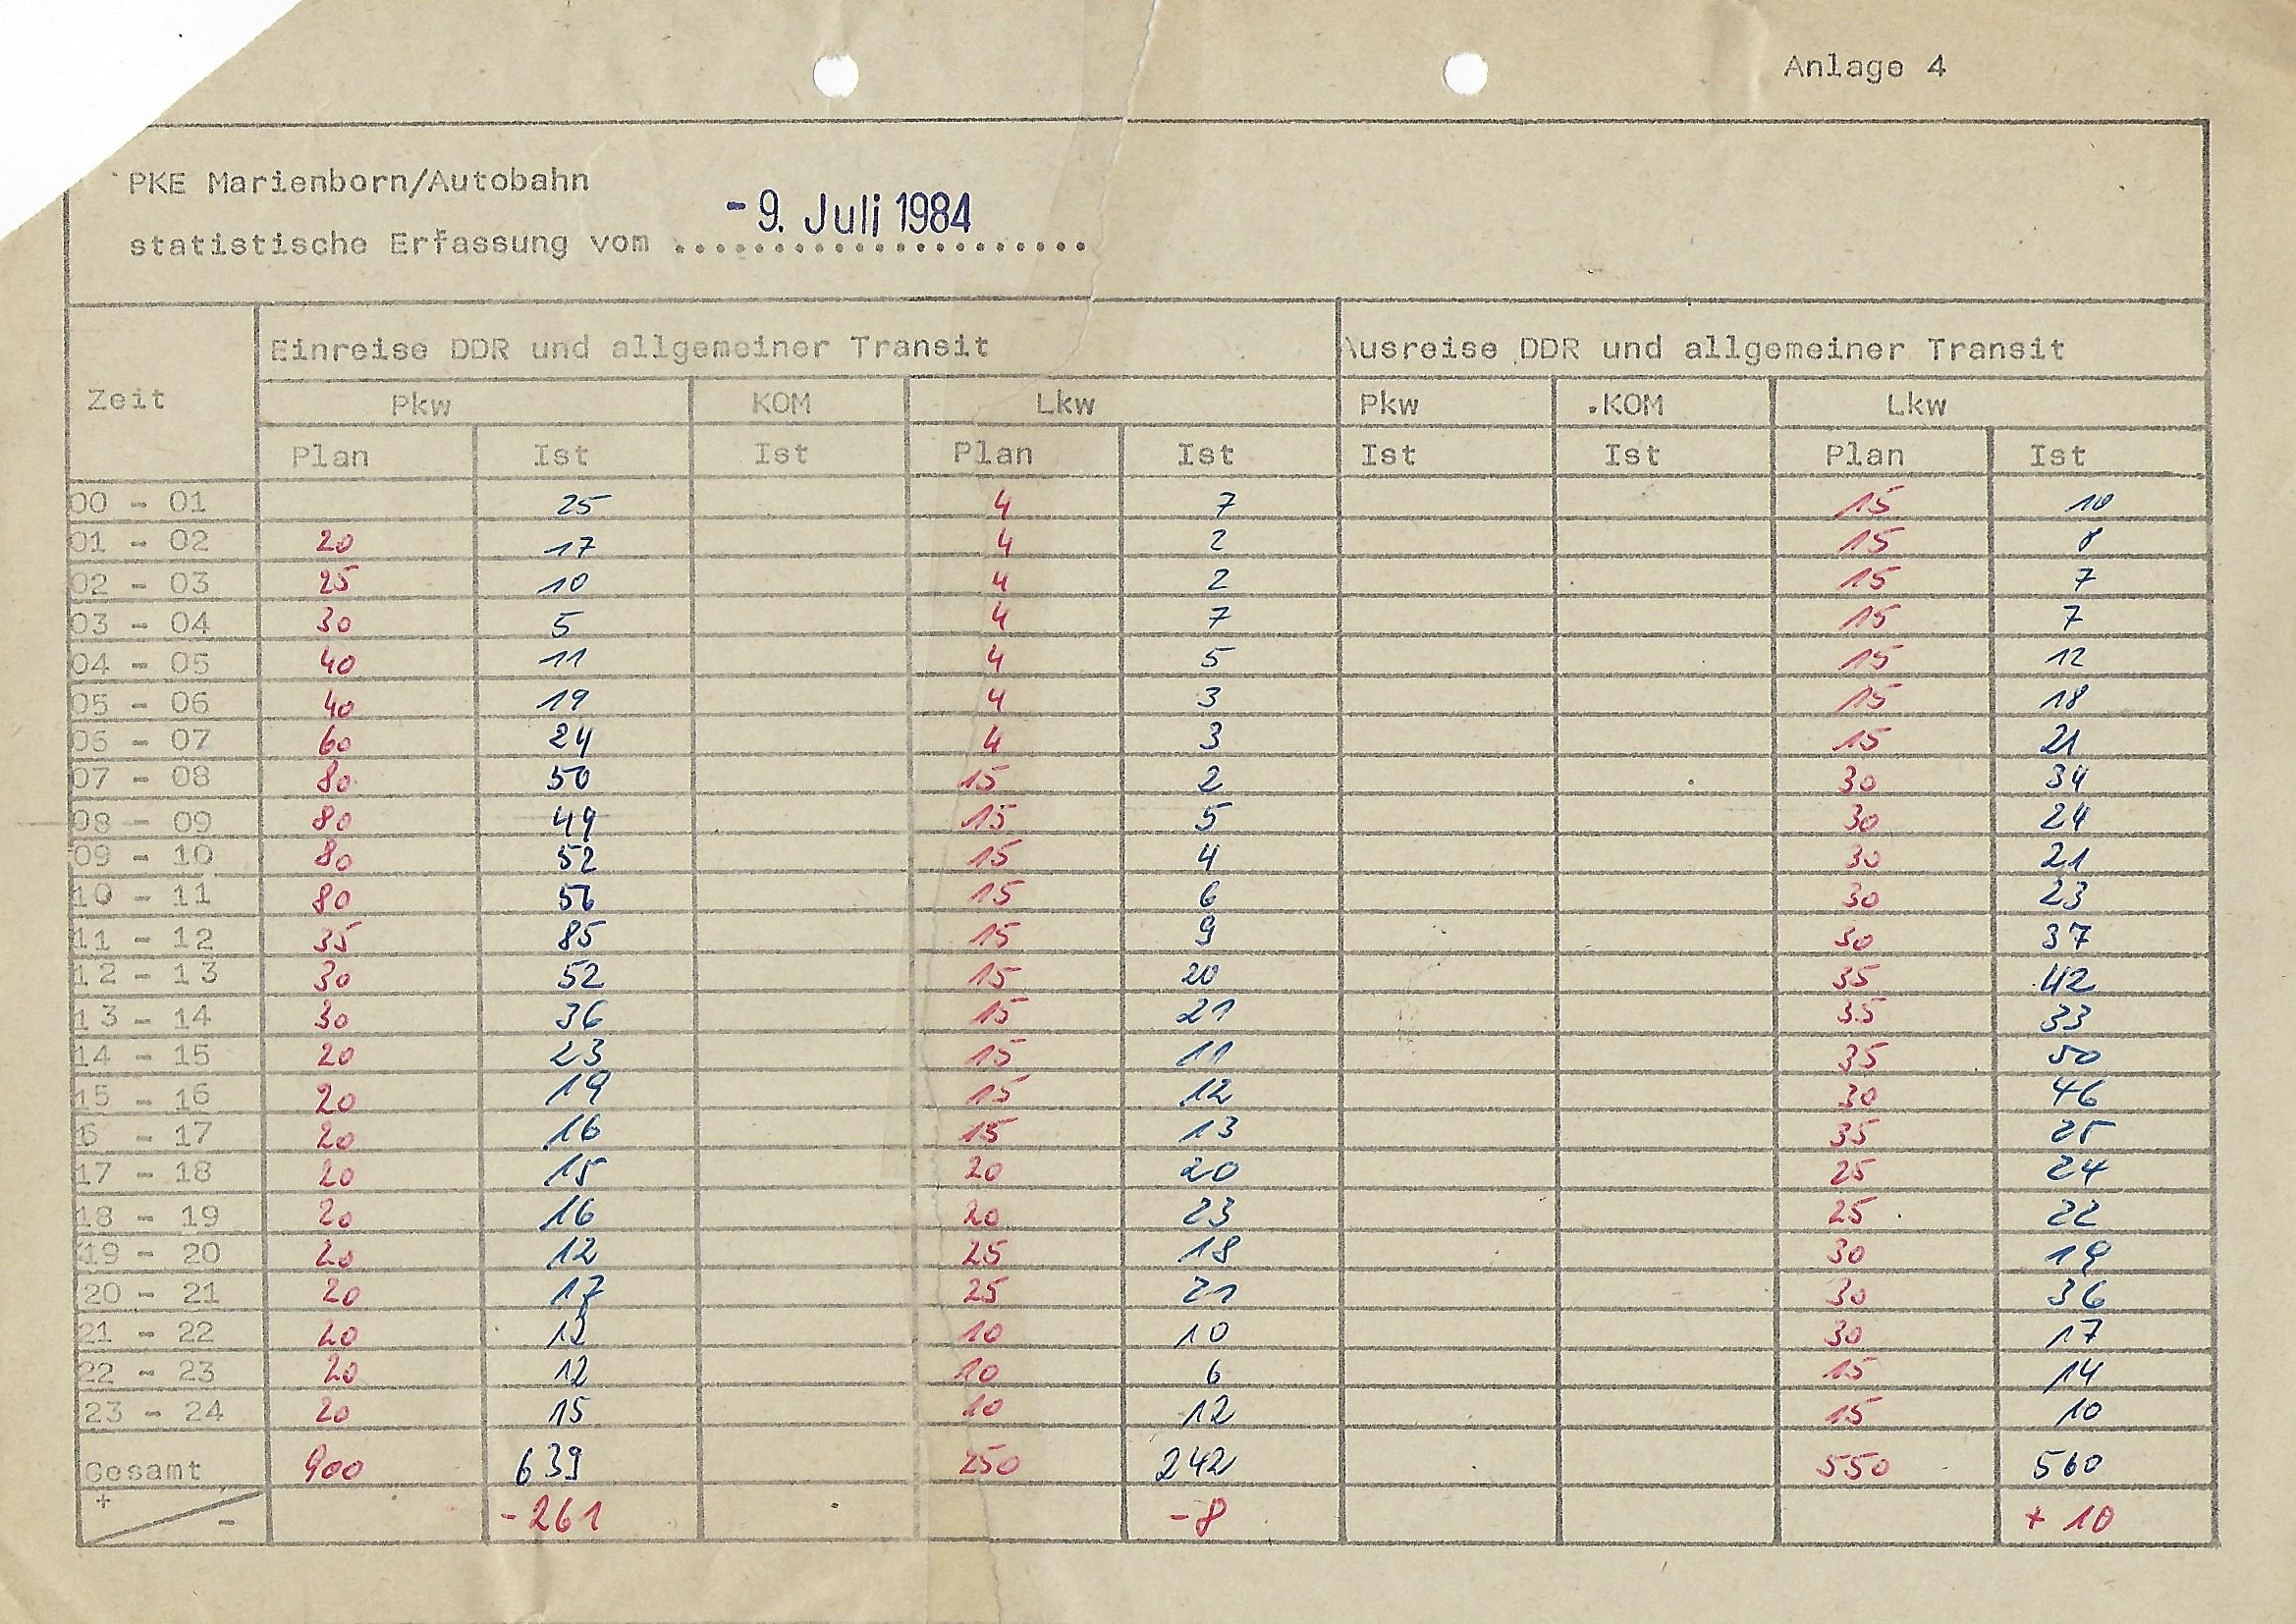 Anlage 4
PKE Marienborn/Autobahn
statistische Erfassung vom - 9. Juli 1984
Zeit Einreise DDR und allgemeiner Transit Ausreise DDR und allgemeiner Transit
Pkw KOM Lkw Pkw KOM Lkw
Plan Ist Ist Plan Ist Ist Ist Plan Ist
00 - 01 25 4 7 15 10
01 - 02 20 17 4 2 15 8
02 - 03 25 10 4 2 15 7
03 - 04 30 5 4 7 15 7
04 - 05 40 11 4 5 15 12
05 - 06 40 19 4 3 15 18
06 - 07 60 24 4 3 15 21
07 - 08 80 50 15 2 30 34
08 - 09 80 49 15 5 30 24
09 - 10 80 52 15 4 30 21
10 - 11 80 56 15 6 30 23
11 - 12 35 85 15 9 30 37
12 - 13 30 52 15 20 35 42
13 - 14 30 36 15 21 35 33
14 - 15 20 23 15 11 35 50
15 - 16 20 19 15 12 30 46
6 - 17 20 16 15 13 35 25
17 - 18 20 15 20 20 25 24
18 - 19 20 16 20 23 25 22
19 - 20 20 12 25 18 30 19
20 - 21 20 17 25 21 30 36
21 - 22 20 12 10 10 30 17
22 - 23 20 12 10 6 15 14
23 - 24 20 15 10 12 15 10
Gesamt 900 639 250 242 550 560
+ - -261 -8 + 10